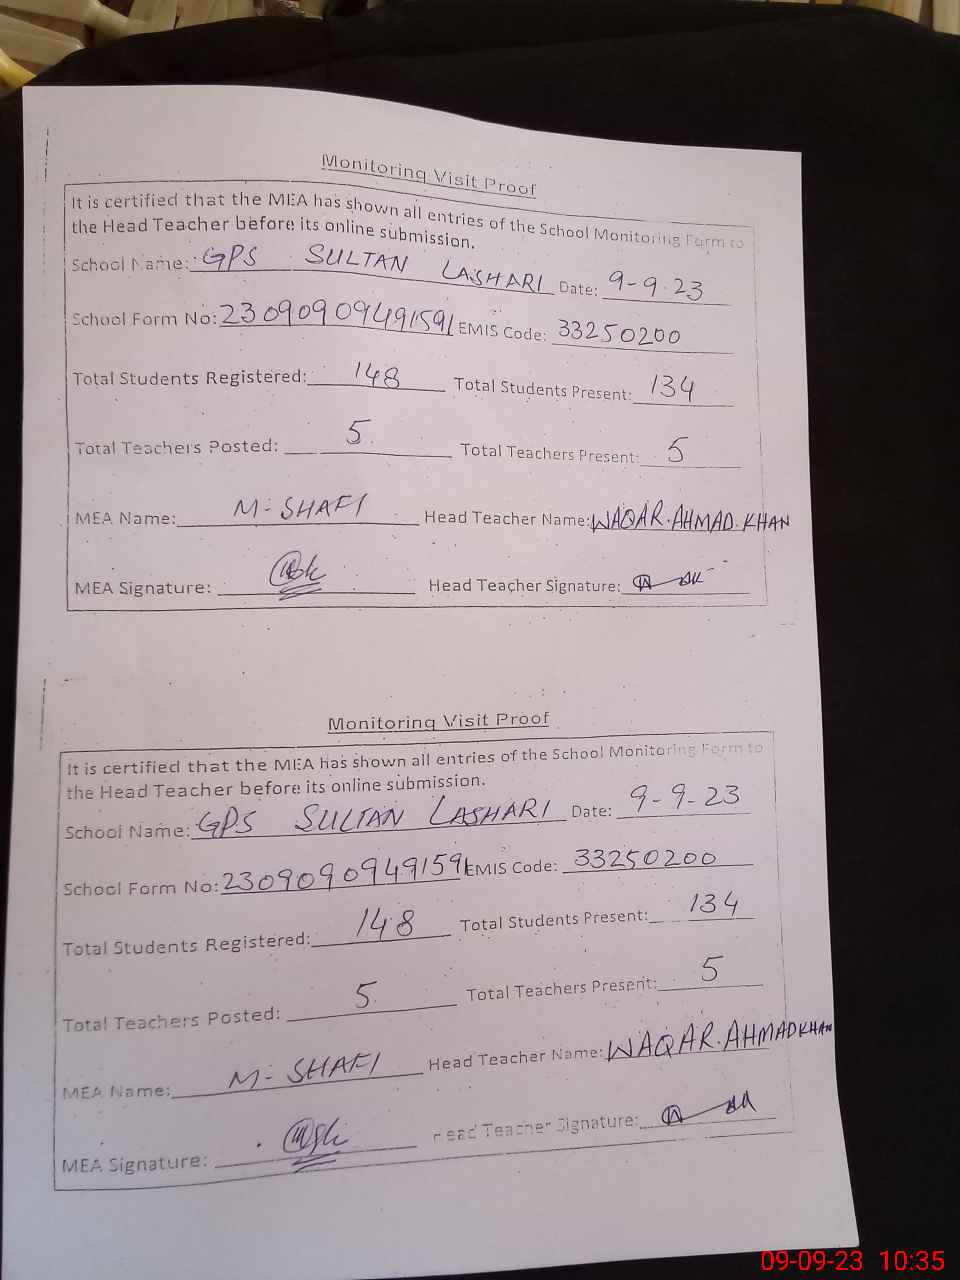 Monitoring Visit Proof
It is certified that the MEA has shown all entries of the School Monitoring Form to
the Head Teacher before its online submission.
School Name: GPS SULTAN LASHARI Date: 9-9-23
School Form No: 23090909491591 EMIS Code: 33250200
Total Students Registered: 148 Total Students Present: 134
Total Teachers Posted: 5 Total Teachers Present: 5
MEA Name: M-SHAFI Head Teacher Name: WAQAR.AHMAD.KHAN
MEA Signature: Head Teacher Signature:
Monitoring Visit Proof
It is certified that the MEA has shown all entries of the School Monitoring Form to
the Head Teacher before its online submission.
School Name: GPS SULTAN LASHARI Date: 9-9-23
School Form No: 23090909491591 EMIS Code: 33250200
Total Students Registered: 148 Total Students Present: 134
Total Teachers Posted: 5 Total Teachers Present: 5
MEA Name: M-SHAFI Head Teacher Name: WAQAR.AHMADKHAN
MEA Signature: Head Teacher Signature:
09-09-23 10:35